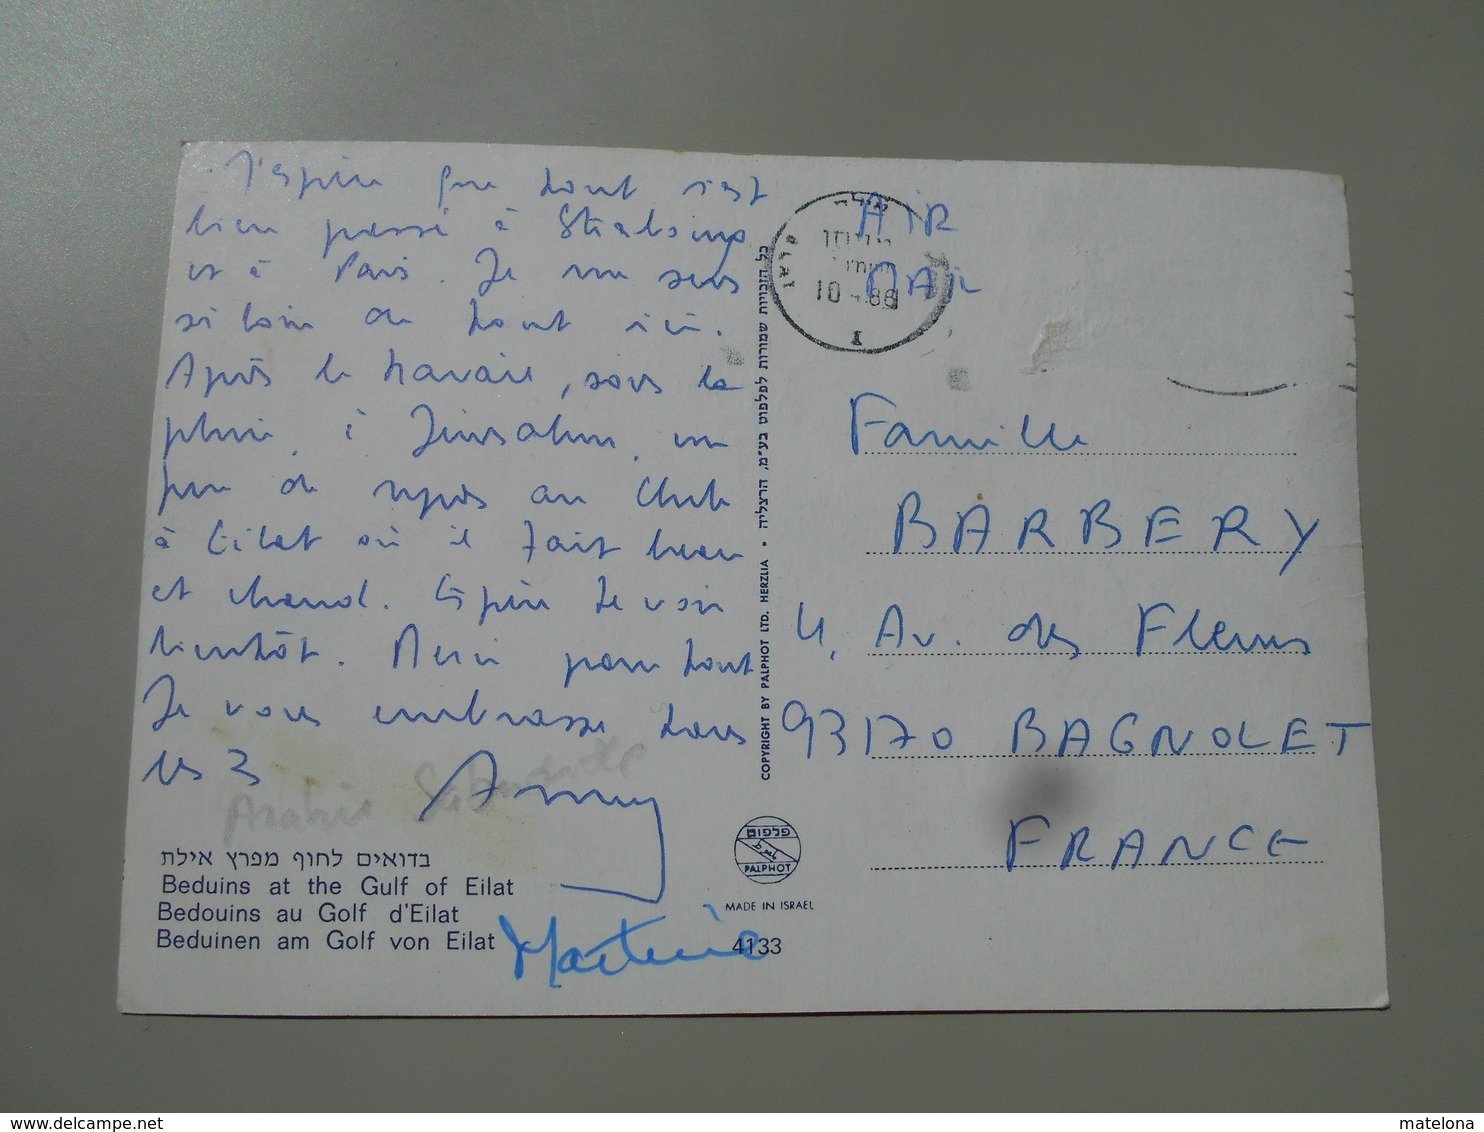 J'espère que tout s'est
bien passé à Strasbourg
et à Paris. Je me sens
si loin de tout ici.
Après le travail, sous la
pluie, à Jérusalem, un
peu de repos au Club
à Eilat où il fait beau
et chaud. Espère te voir
bientôt. Merci pour tout
Je vous embrasse tous
les 3
Martine
Arabie Saoudite
בדואים לחוף מפרץ אילת
Beduins at the Gulf of Eilat
Bedouins au Golf d'Eilat
Beduinen am Golf von Eilat
כל הזכויות שמורות לפלפוט בע"מ, הרצליה • COPYRIGHT BY PALPHOT LTD. HERZLIA
פלפוט
PALPHOT
MADE IN ISRAEL
4133
ELAT
10 4.86
AIR
MAIL
Famille
BARBERY
4, Av. des Fleurs
93170 BAGNOLET
FRANCE
matelona
delcampe.net